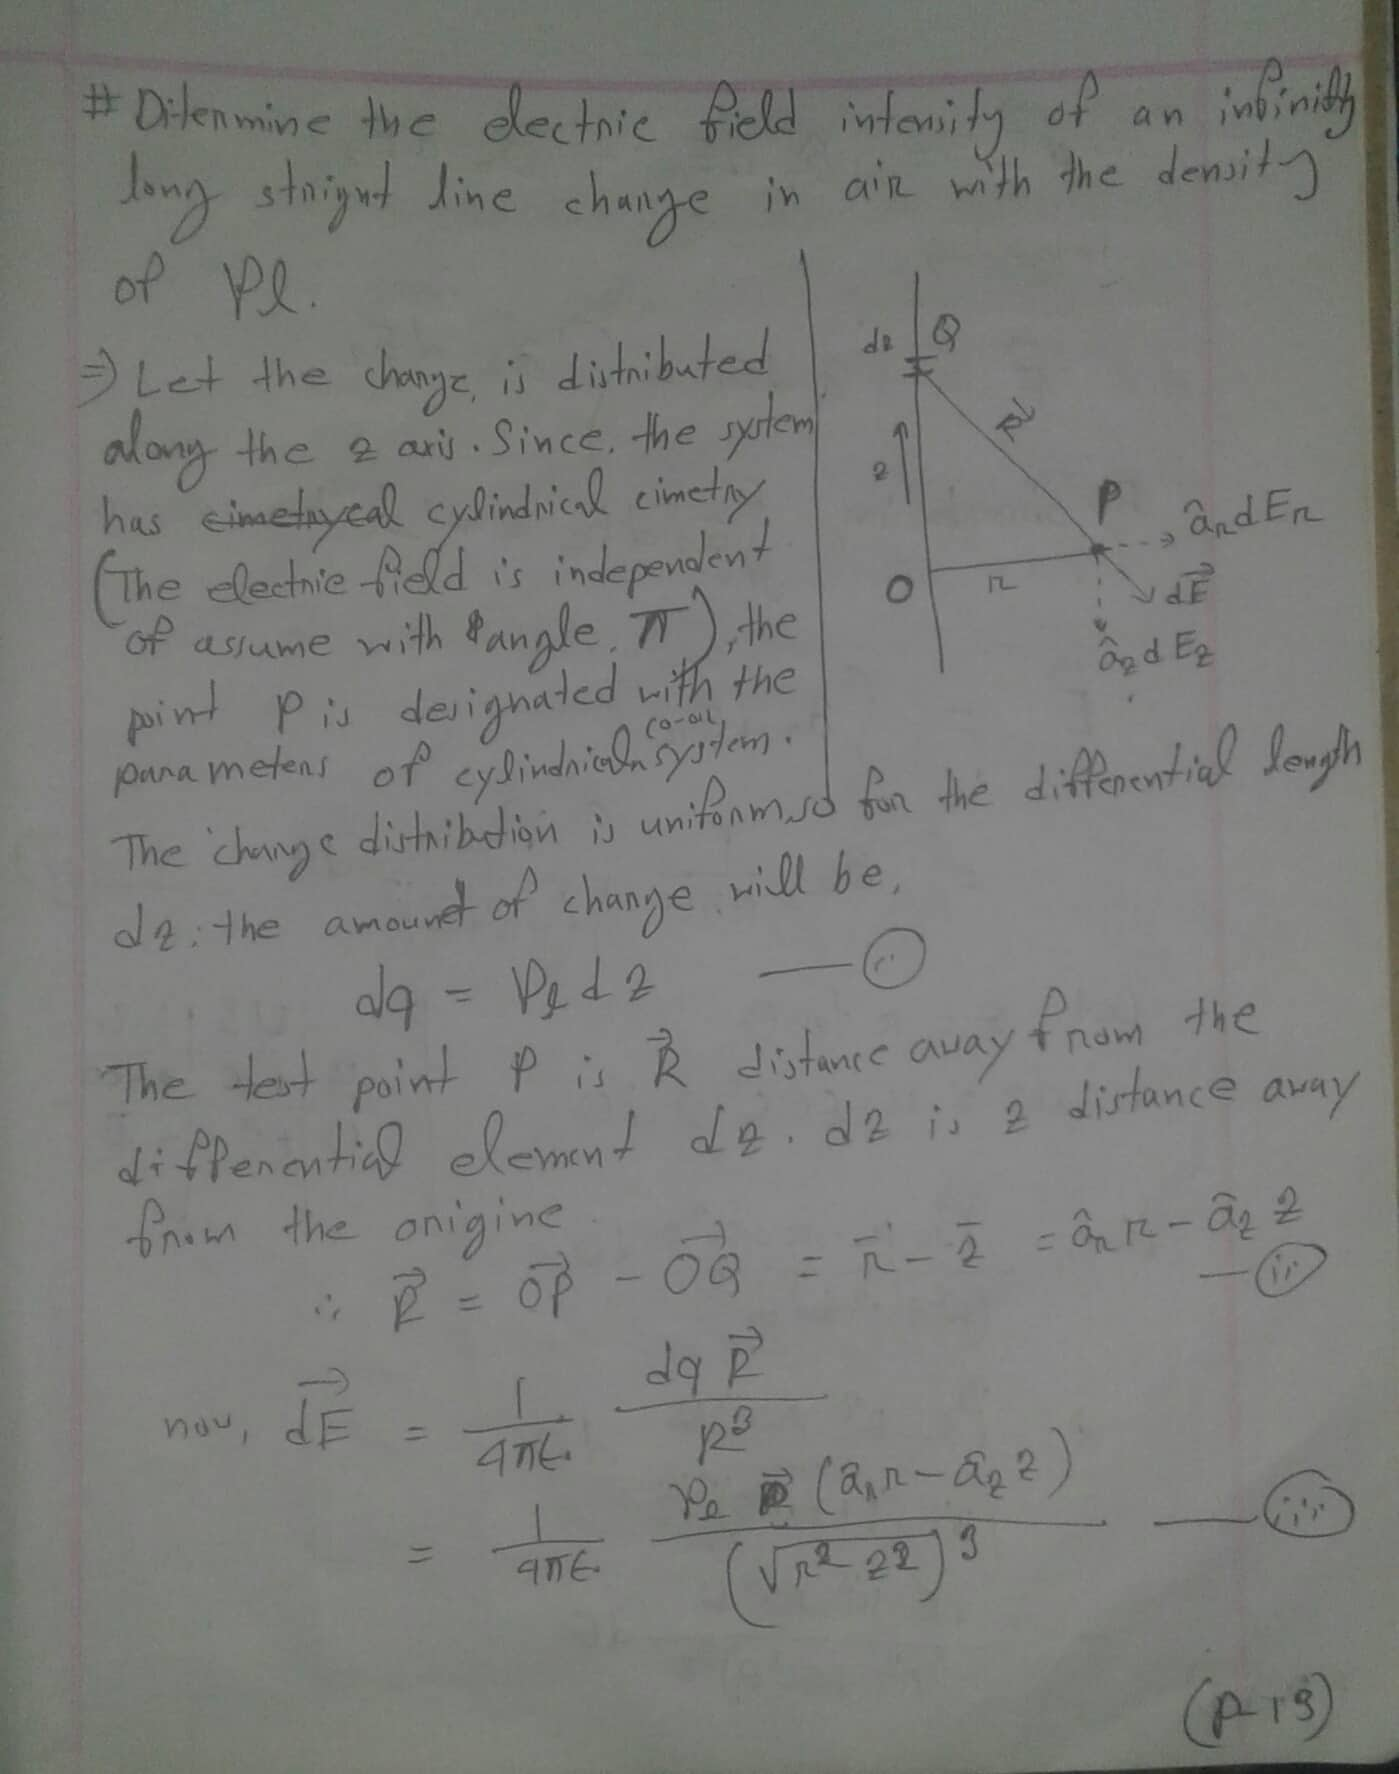 # Ditermine the electric field intensity of an infinitly
long straignt line charge in air with the density
of ρl.
⇒) Let the charge, is distributed
along the z axis. Since, the system
has cimetrycal cylindrical cimetry
(The electric field is independent
of assume with angle, π), the
point P is designated with the
parameters of cylindrical co-or, system.
dz Q
R⃗
z
P
âr dEr
O r
dE⃗
âz dEz
The charge distribution is uniform, so for the differential length
dz, the amount of charge will be,
dq = ρl dz —(i)
The test point P is R⃗ distance away from the
differential element dz. dz is z distance away
from the origine.
∴ R⃗ = OP⃗ - OQ⃗ = r̄ - z̄ = âr r - âz z
—(ii)
now, dE⃗ = 1/4πϵ. dq R⃗/R³
= 1/4πϵ. ρl (âr r - âz z)/(√r² z²)³ —(iii)
(P-13)